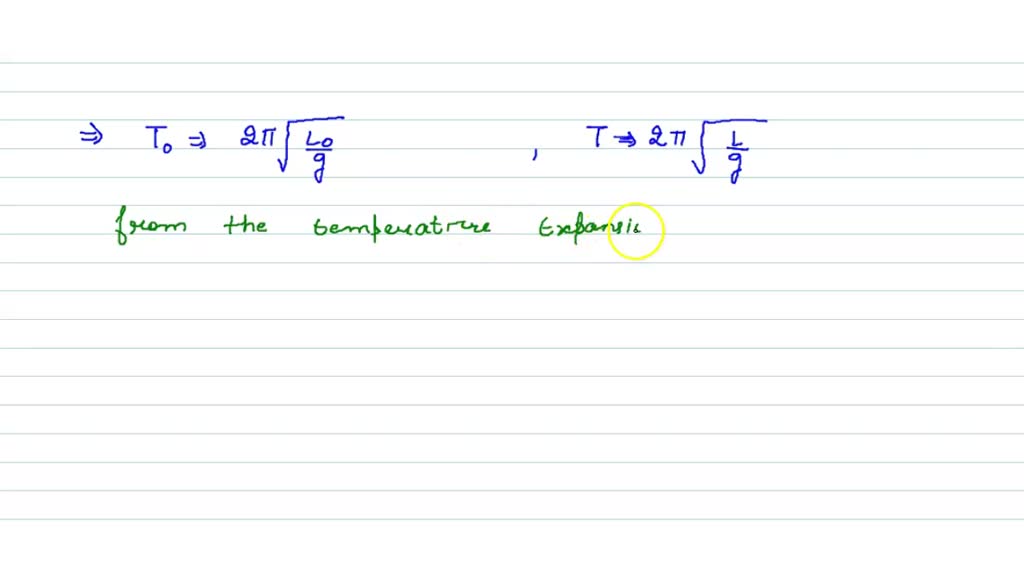 ⇒ T₀ ⇒ 2π√(L₀/g) , T → 2π√(L/g)
from the temperature Expansi